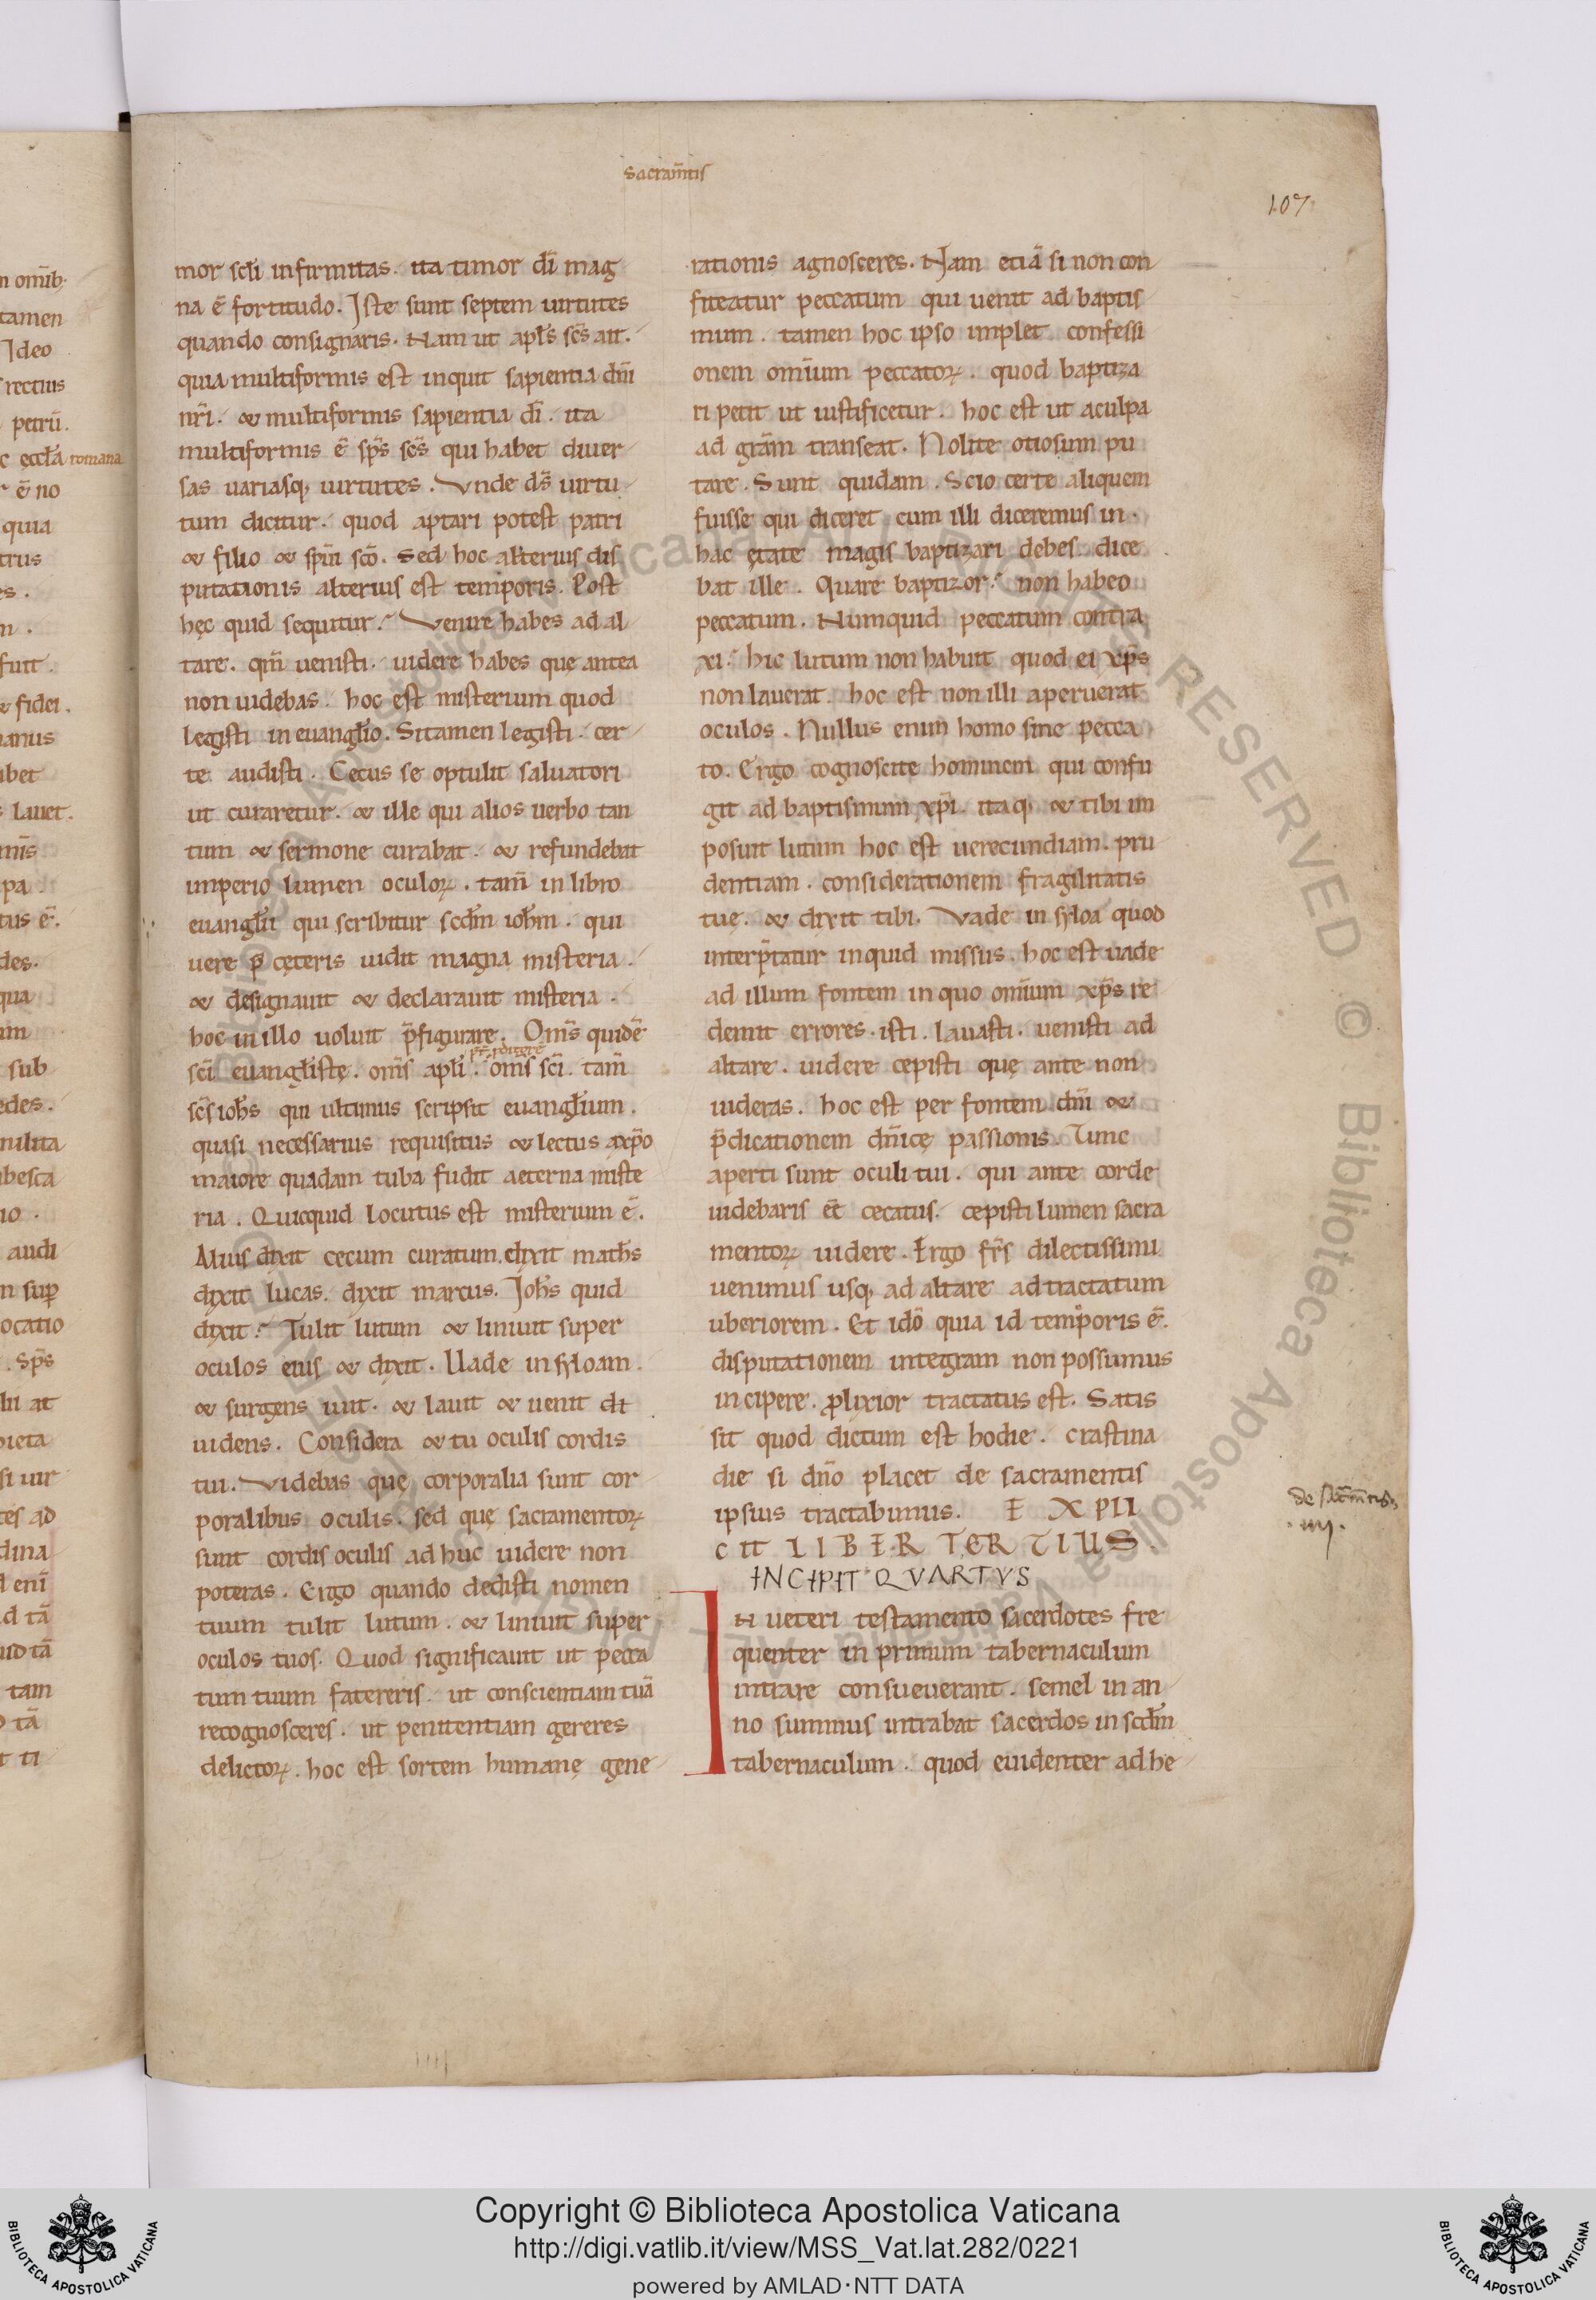 sacram̄tis
107
mor scl̄i infirmitas. ita timor dī mag
na ē fortitudo. Iste sunt septem uirtutes
quando consignaris. Nam ut apl̄s sc̄s ait.
quia multiformis est inquit sapientia dn̄i
nr̄i. & multiformis sapientia dī. ita
multiformis ē sp̄s sc̄s qui habet diuer
sas uariasq; uirtutes. Vnde ds̄ uirtu
tum dicitur. quod aptari potest patri
& filio & sp̄ui scō. Sed hoc alterius dis
putationis alterius est temporis. Post
hęc quid sequitur? Venire habes ad al
tare. qm̄ uenisti. uidere habes quę antea
non uidebas. hoc est misterium quod
legisti in euangl̄io. Si tamen legisti. cer
te audisti. Cecus se optulit saluatori
ut curaretur. & ille qui alios uerbo tan
tum & sermone curabat. & refundebat
imperio lumen oculoꝝ. tam̄ in libro
euangl̄ii qui scribitur scdm̄ ioh̄m. qui
uere p̄ ceteris uidit magna misteria.
& designauit & declarauit misteria.
hoc in illo uoluit p̄figurare. Om̄s quidē
sc̄i euangl̄istę. om̄s apl̄i. om̄s sc̄i. tam̄
sc̄s ioh̄s qui ultimus scripsit euangl̄ium.
quasi necessarius requisitus & lectus a xp̄o
maiore quadam tuba fudit aeterna miste
ria. Quicquid locutus est misterium ē.
Alius dixit cecum curatum. dixit math̄s
dixit lucas. dixit marcus. Ioh̄s quid
dixit? Tulit lutum & liniuit super
oculos eius & dixit. Uade in syloam.
& surgens iuit. & lauit & uenit
uidens. Considera & tu oculis cordis
tui. Videbas quę corporalia sunt cor
poralibus oculis. sed quę sacramentoꝝ
sunt cordis oculis ad huc uidere non
poteras. Ergo quando dedisti nomen
tuum tulit lutum. & liniuit super
oculos tuos. Quod significauit ut pecca
tum tuum fatereris. ut conscientiam tuā
recognosceres. ut penitentiam gereres
delictoꝝ. hoc est sortem humanę gene
rationis agnosceres. Nam etiā si non con
fiteatur peccatum qui uenit ad baptis
mum. tamen hoc ipso implet confessi
onem omīum peccatoꝝ. quod baptiza
ri petit ut iustificetur. hoc est ut a culpa
ad grām transeat. Nolite otiosum pu
tare. Sunt quidam. Scio certe aliquem
fuisse qui diceret cum illi diceremus in
hac ętate magis baptizari debes. dice
bat ille. Quare baptizor? non habeo
peccatum. Numquid peccatum contra
xi? hic lutum non habuit quod ei xp̄s
non lauerat. hoc est non illi aperuerat
oculos. Nullus enim homo sine pecca
to. Ergo cognoscite hominem qui confu
git ad baptismum xp̄i. itaq; & tibi im
posuit lutum hoc est uerecundiam. pru
dentiam. considerationem fragilitatis
tuę. & dixit tibi. Vade in syloa quod
interp̄tatur inquid missus. hoc est uade
ad illum fontem in quo omīum xp̄s re
demit errores. isti. lauasti. uenisti ad
altare. uidere cepisti quę ante non
uideras. hoc est per fontem dn̄i &
p̄dicationem dn̄icę passionis. Tunc
aperti sunt oculi tui. qui ante corde
uidebaris eē cecatus. cepisti lumen sacra
mentoꝝ uidere. Ergo fr̄s dilectissimi
uenimus usq; ad altare ad tractatum
uberiorem. Et idō quia id temporis ē.
disputationem integram non possumus
incipere. ꝓlixior tractatus est. Satis
sit quod dictum est hodie. crastina
die si dn̄o placet de sacramentis
ipsius tractabimus. EXPLI
CIT LIBER TERTIUS.
INCIPIT QVARTVS
In ueteri testamento sacerdotes fre
quenter in primum tabernaculum
intrare consueuerant. semel in an
no summus intrabat sacerdos in scdm̄
tabernaculum. quod euidenter ad he
de sacr̄m̄tis
.iiij.
Copyright © Biblioteca Apostolica Vaticana
http://digi.vatlib.it/view/MSS_Vat.lat.282/0221
powered by AMLAD·NTT DATA
BIBLIOTECA APOSTOLICA VATICANA
BIBLIOTECA APOSTOLICA VATICANA